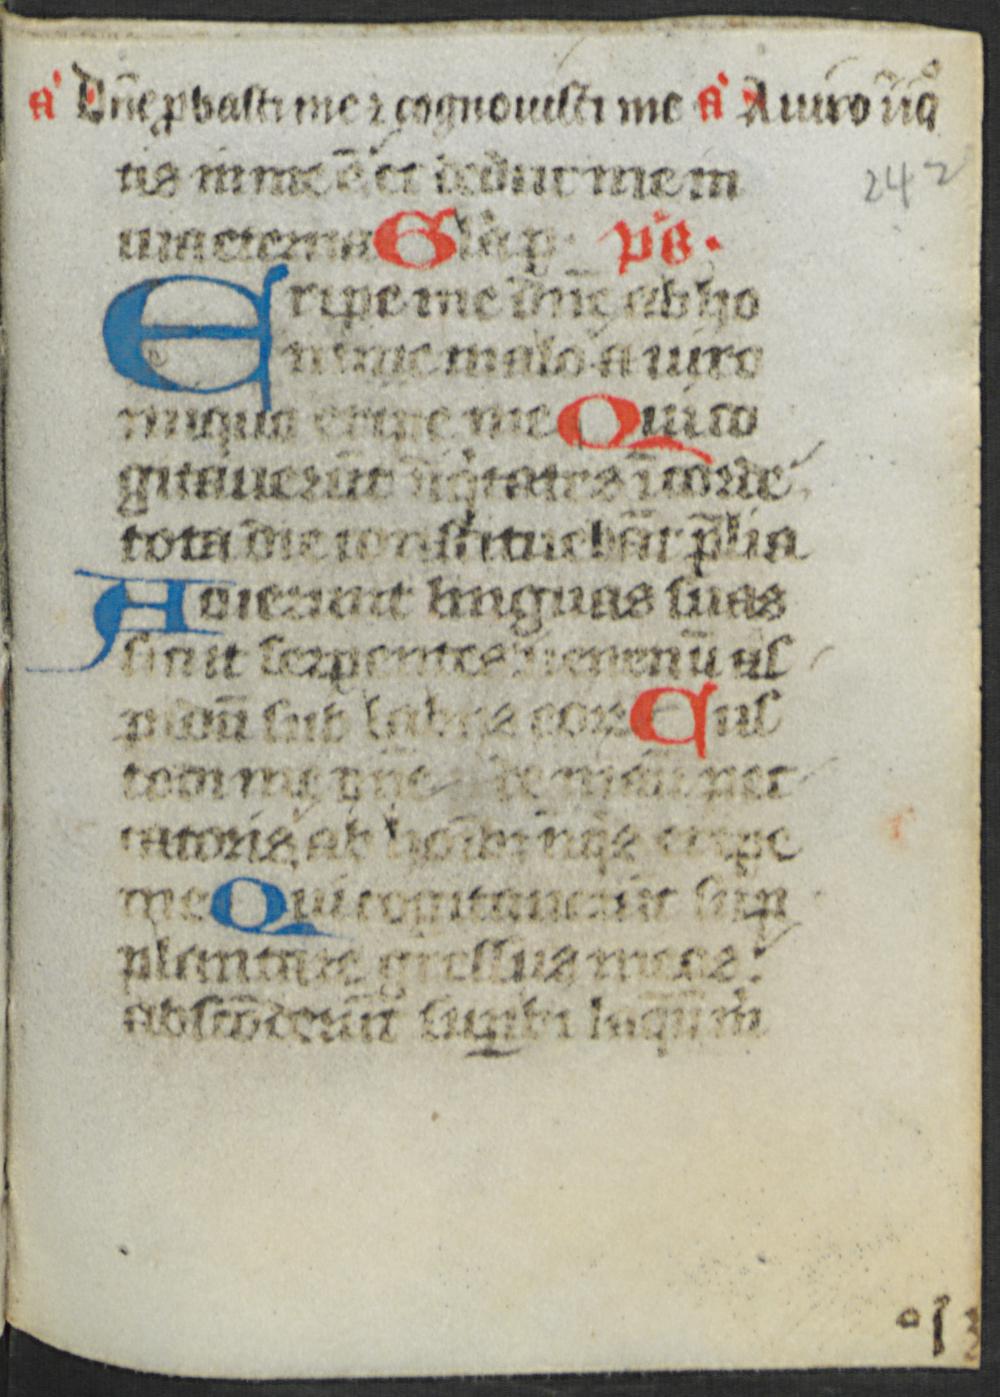 a᷎ Dn̄e ꝓbasti me ⁊ cognouisti me a᷎ A uiro iniq̊
242
tis in me ē et deduc me in
uia eterna Gla p. ps.
Eripe me dn̄e ab ho
mine malo a uiro
iniquo eripe me Qui co
gitauerūt iniq̇tates ī corde
tota die constituebāt p̄lia
Acuerunt linguas suas
sicut serpentes uenenū as
pidū sub labiis eoꝝ Cus
todi me dn̄e de manu pec
catoris ab hoīb iniq̇s eripe
me Qui cogitauerūt sup
plantare gressus meos:
absconderūt supbi laqueū m̄